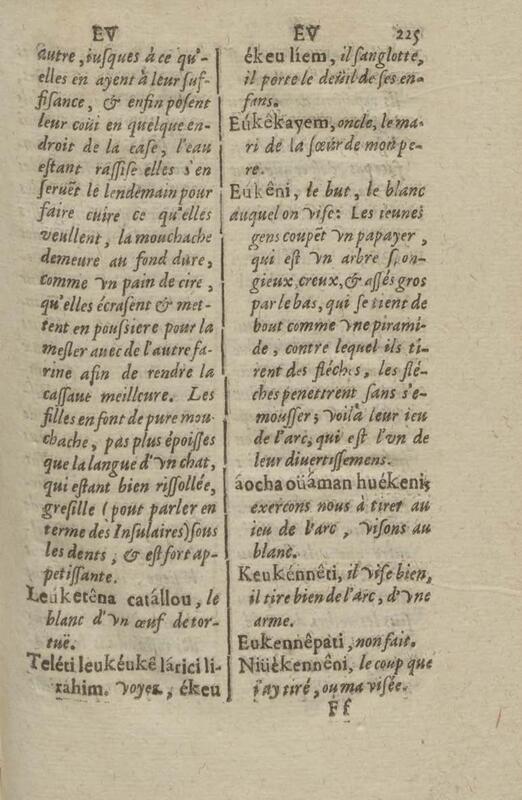 EV
autre, iusques à ce qu'-
elles en ayent à leur suf-
fisance, & enfin posent
leur coüi en quelque en-
droit de la case, l'eau
estant rassise elles s'en
seruẽt le lendemain pour
faire cuire ce qu'elles
veullent, la mouchache
demeure au fond dure,
comme vn pain de cire,
qu'elles écrasent & met-
tent en poussiere pour la
mesler auec de l'autre fa-
rine afin de rendre la
cassaue meilleure. Les
filles en font de pure mou-
chache, pas plus époisses
que la langue d'vn chat,
qui estant bien rissollée,
gresille (pour parler en
terme des Insulaires) sous
les dents, & est fort ap-
petissante.
Leúketêna catállou, le
blanc d'vn œuf de tor-
tuë.
Teléti leukéukê lárici li-
rahim. voyez, ékeu
EV 225
ékeu liem, il sanglotte,
il porte le deüil de ses en-
fans.
Eúkêkayem, oncle, le ma-
ri de la sœur de mon pe-
re.
Eukêni, le but, le blanc
auquel on vise: Les ieunes
gens coupẽt vn papayer,
qui est vn arbre spon-
gieux, creux, & assés gros
par le bas, qui se tient de
bout comme vne pirami-
de, contre lequel ils ti-
rent des fléches, les flé-
ches penettrent sans s'é-
mousser; voilà leur ieu
de l'arc, qui est l'vn de
leur diuertissemens.
áocha oüáman huékeni,
exercons nous à tirer au
ieu de l'arc, visons au
blanc.
Keukénnêti, il vise bien,
il tire bien de l'arc, d'vne
arme.
Eukennêpati, non fait.
Niüékennêni, le coup que
i'ay tiré, ou ma visée.
Ff